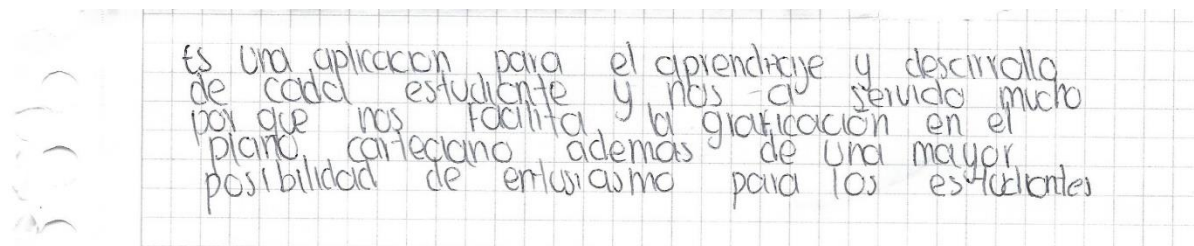 Es una aplicacion para el aprendizaje y desarrolla
de cada estudiante y nos a servido mucho
por que nos facilita y la graficación en el
plano cartegiano además de una mayor
posibilidad de entusiasmo para los estudiantes